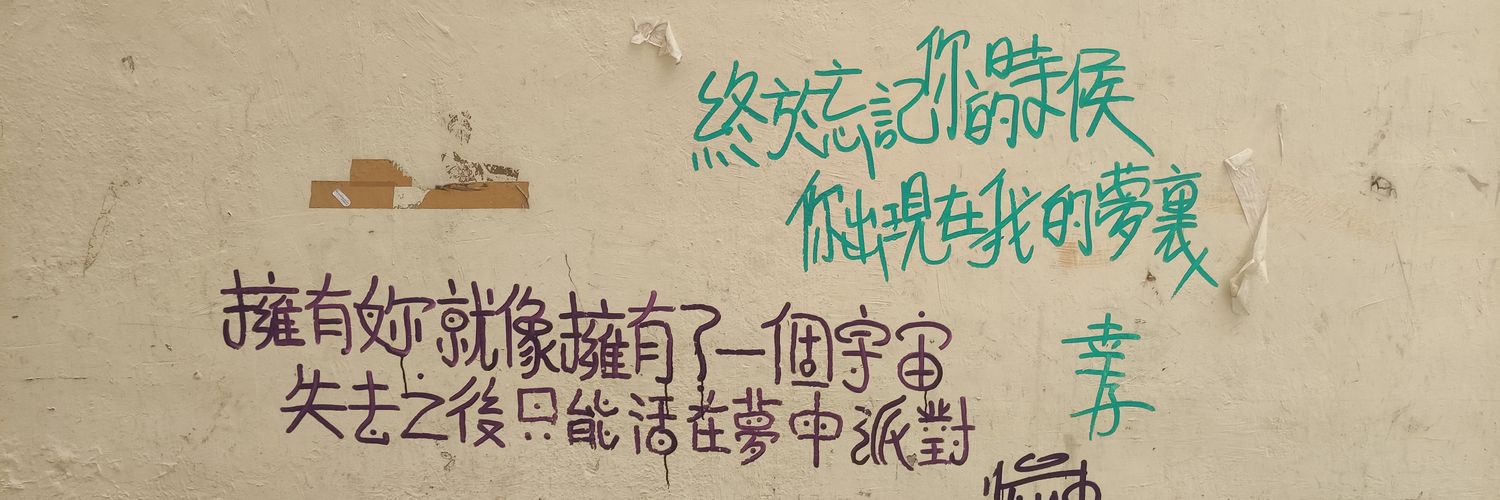 終於忘記你的時候
你出現在我的夢裏
擁有妳就像擁有了一個宇宙
失去之後只能活在夢中派對